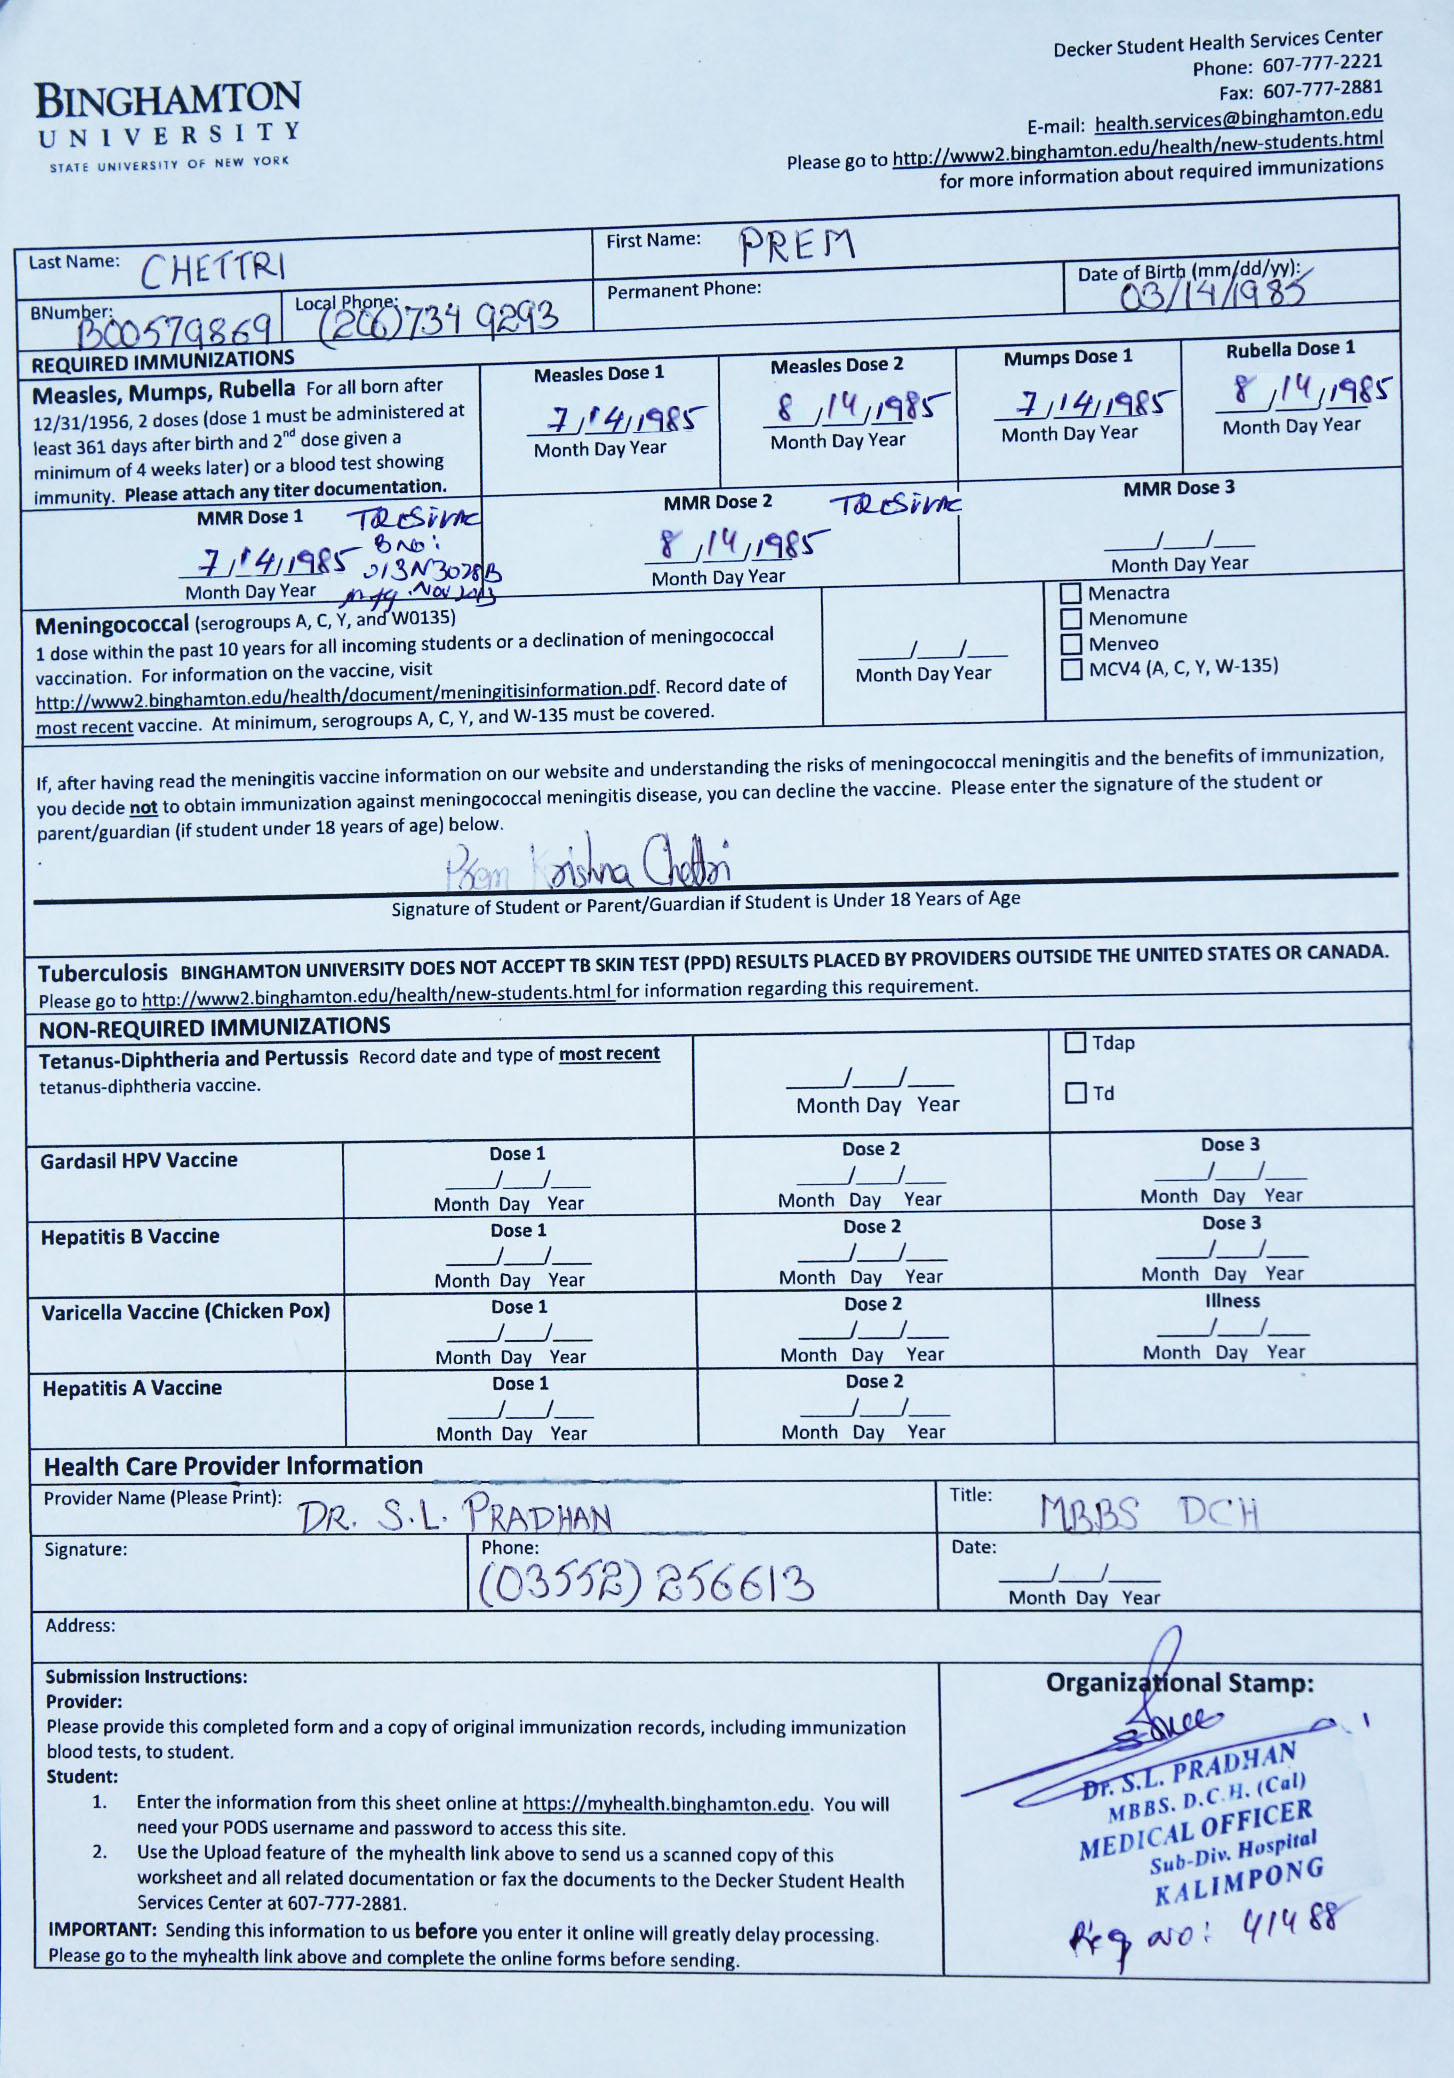 BINGHAMTON
UNIVERSITY
STATE UNIVERSITY OF NEW YORK
Decker Student Health Services Center
Phone: 607-777-2221
Fax: 607-777-2881
E-mail: health.services@binghamton.edu
Please go to http://www2.binghamton.edu/health/new-students.html
for more information about required immunizations
Last Name: CHETTRI
First Name: PREM
BNumber: B00579869
Local Phone: (206)734 9293
Permanent Phone:
Date of Birth (mm/dd/yy): 03/14/1985
REQUIRED IMMUNIZATIONS
Measles, Mumps, Rubella For all born after
12/31/1956, 2 doses (dose 1 must be administered at
least 361 days after birth and 2nd dose given a
minimum of 4 weeks later) or a blood test showing
immunity. Please attach any titer documentation.
Measles Dose 1
7/14/1985
Month Day Year
Measles Dose 2
8/14/1985
Month Day Year
Mumps Dose 1
7/14/1985
Month Day Year
Rubella Dose 1
8/14/1985
Month Day Year
MMR Dose 1 TRESIVAC
7/14/1985 BNo:
013N3028B
Month Day Year Mfg. Nov 2013
MMR Dose 2 TRESIVAC
8/14/1985
Month Day Year
MMR Dose 3
__/__/__
Month Day Year
Meningococcal (serogroups A, C, Y, and W0135)
1 dose within the past 10 years for all incoming students or a declination of meningococcal
vaccination. For information on the vaccine, visit
http://www2.binghamton.edu/health/document/meningitisinformation.pdf. Record date of
most recent vaccine. At minimum, serogroups A, C, Y, and W-135 must be covered.
__/__/__
Month Day Year
Menactra
Menomune
Menveo
MCV4 (A, C, Y, W-135)
If, after having read the meningitis vaccine information on our website and understanding the risks of meningococcal meningitis and the benefits of immunization,
you decide not to obtain immunization against meningococcal meningitis disease, you can decline the vaccine. Please enter the signature of the student or
parent/guardian (if student under 18 years of age) below.
Prem Krishna Chettri
Signature of Student or Parent/Guardian if Student is Under 18 Years of Age
Tuberculosis BINGHAMTON UNIVERSITY DOES NOT ACCEPT TB SKIN TEST (PPD) RESULTS PLACED BY PROVIDERS OUTSIDE THE UNITED STATES OR CANADA.
Please go to http://www2.binghamton.edu/health/new-students.html for information regarding this requirement.
NON-REQUIRED IMMUNIZATIONS
Tetanus-Diphtheria and Pertussis Record date and type of most recent
tetanus-diphtheria vaccine.
__/__/__
Month Day Year
Tdap
Td
Gardasil HPV Vaccine
Dose 1
__/__/__
Month Day Year
Dose 2
__/__/__
Month Day Year
Dose 3
__/__/__
Month Day Year
Hepatitis B Vaccine
Dose 1
__/__/__
Month Day Year
Dose 2
__/__/__
Month Day Year
Dose 3
__/__/__
Month Day Year
Varicella Vaccine (Chicken Pox)
Dose 1
__/__/__
Month Day Year
Dose 2
__/__/__
Month Day Year
Illness
__/__/__
Month Day Year
Hepatitis A Vaccine
Dose 1
__/__/__
Month Day Year
Dose 2
__/__/__
Month Day Year
Health Care Provider Information
Provider Name (Please Print): DR. S.L. PRADHAN
Title: MBBS DCH
Signature:
Phone: (03552) 256613
Date:
__/__/__
Month Day Year
Address:
Submission Instructions:
Provider:
Please provide this completed form and a copy of original immunization records, including immunization
blood tests, to student.
Student:
1. Enter the information from this sheet online at https://myhealth.binghamton.edu. You will
need your PODS username and password to access this site.
2. Use the Upload feature of the myhealth link above to send us a scanned copy of this
worksheet and all related documentation or fax the documents to the Decker Student Health
Services Center at 607-777-2881.
IMPORTANT: Sending this information to us before you enter it online will greatly delay processing.
Please go to the myhealth link above and complete the online forms before sending.
Organizational Stamp:
Dr. S.L. PRADHAN
MBBS. D.C.H. (Cal)
MEDICAL OFFICER
Sub-Div. Hospital
KALIMPONG
Reg no: 41488